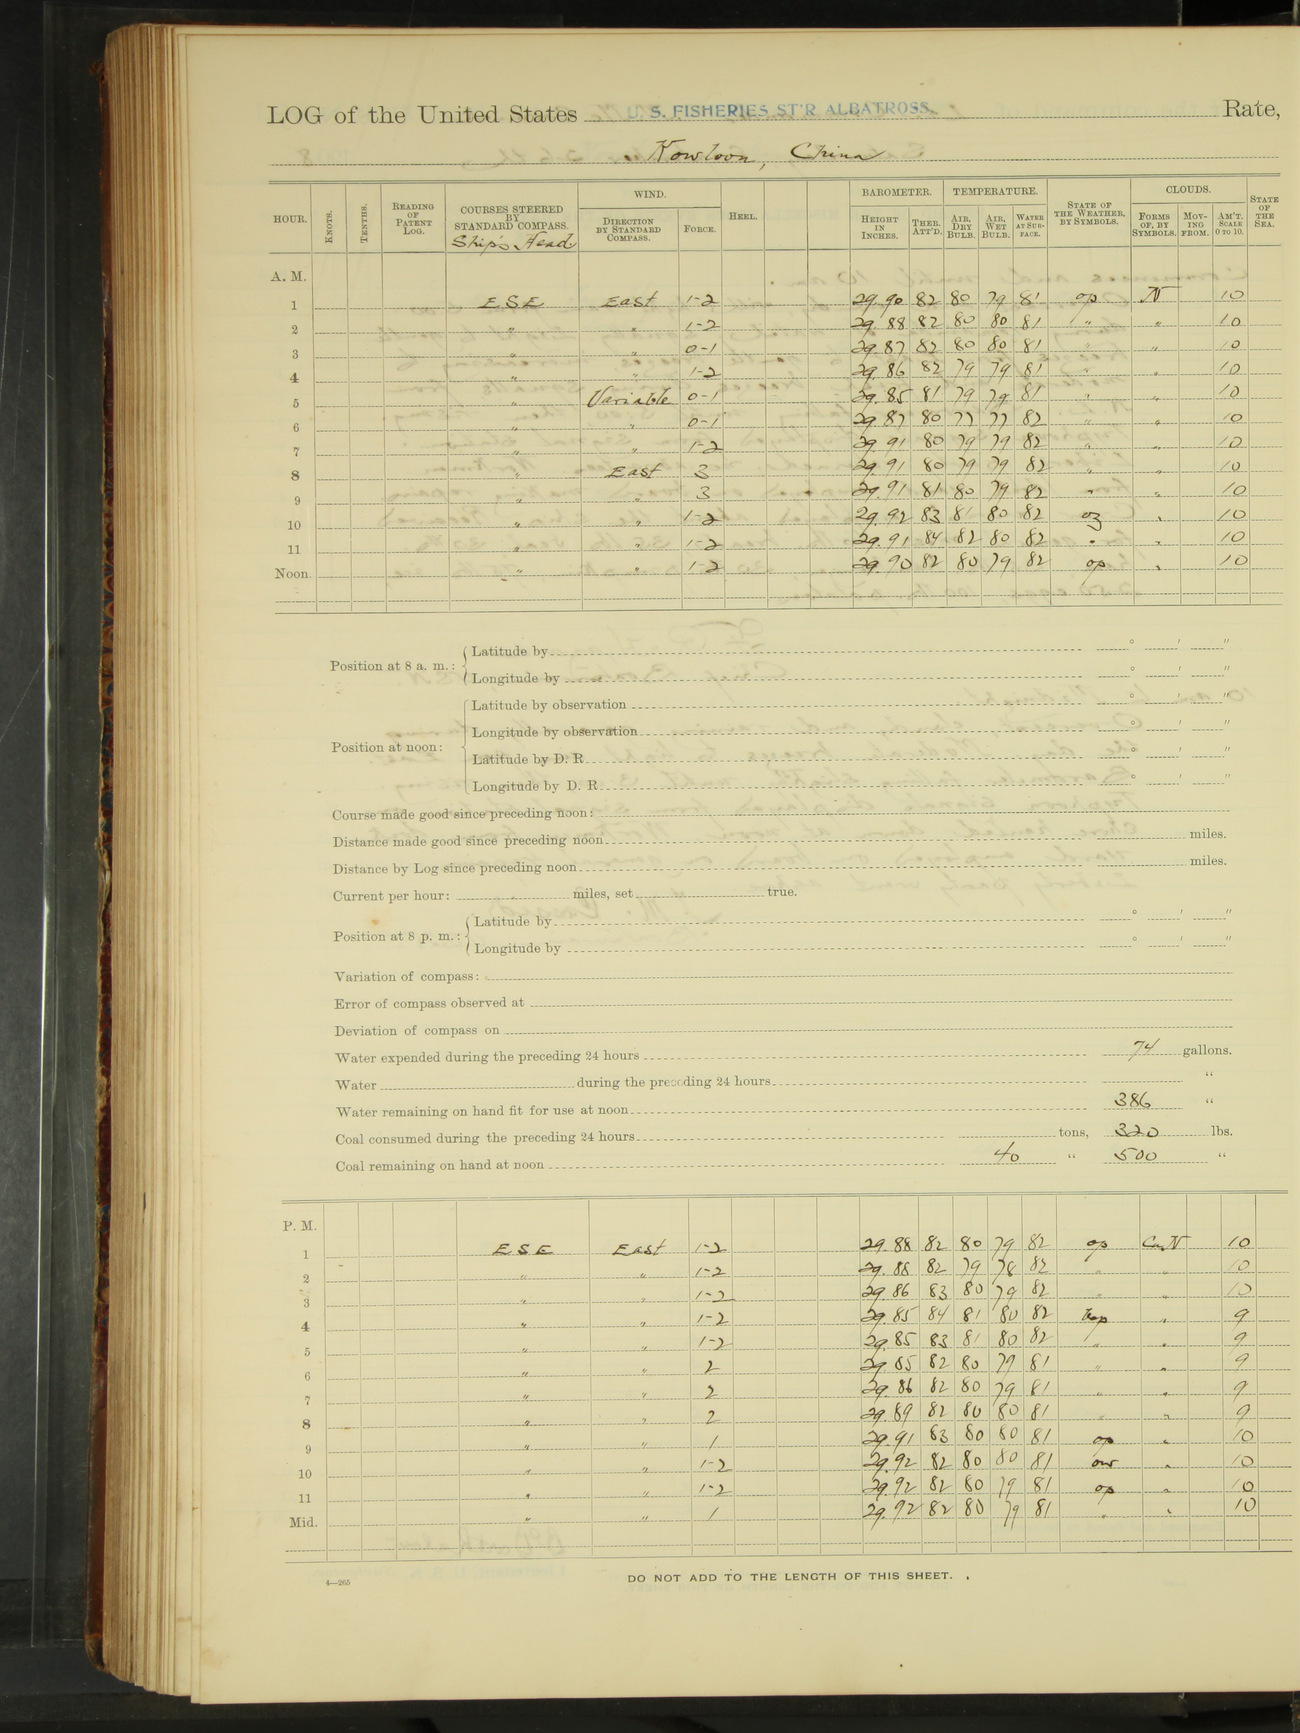 LOG of the United States U. S. FISHERIES ST'R ALBATROSS. Rate,
Kowloon, China
HOUR. KNOTS. TENTHS. READING OF PATENT LOG. COURSES STEERED BY STANDARD COMPASS. Ship's Head WIND. DIRECTION BY STANDARD COMPASS. FORCE. HEEL. BAROMETER. HEIGHT IN INCHES. THER. ATT'D. TEMPERATURE. AIR, DRY BULB. AIR, WET BULB. WATER AT SURFACE. STATE OF THE WEATHER, BY SYMBOLS. CLOUDS. FORMS OF, BY SYMBOLS. MOVING FROM. AM'T. SCALE 0 TO 10. STATE OF THE SEA.
A. M.
1 ESE East 1-2 29.90 82 80 79 81 op N 10
2 " " 1-2 29.88 82 80 80 81 " " 10
3 " " 0-1 29.87 82 80 80 81 " " 10
4 " " 1-2 29.86 82 79 79 81 " " 10
5 " Variable 0-1 29.85 81 79 79 81 " " 10
6 " " 0-1 29.87 80 77 77 82 " " 10
7 " " 1-2 29.91 80 79 79 82 " " 10
8 " East 3 29.91 80 79 79 82 " " 10
9 " " 3 29.91 81 80 79 82 " " 10
10 " " 1-2 29.92 83 81 80 82 oz " 10
11 " " 1-2 29.91 84 82 80 82 " " 10
Noon. " " 1-2 29.90 82 80 79 82 op " 10
Position at 8 a. m.: Latitude by ° ′ ″
Longitude by ° ′ ″
Position at noon: Latitude by observation ° ′ ″
Longitude by observation ° ′ ″
Latitude by D. R. ° ′ ″
Longitude by D. R. ° ′ ″
Course made good since preceding noon:
Distance made good since preceding noon miles.
Distance by Log since preceding noon miles.
Current per hour: miles, set true.
Position at 8 p. m.: Latitude by ° ′ ″
Longitude by ° ′ ″
Variation of compass:
Error of compass observed at
Deviation of compass on
Water expended during the preceding 24 hours 74 gallons.
Water during the preceding 24 hours "
Water remaining on hand fit for use at noon 386 "
Coal consumed during the preceding 24 hours tons, 320 lbs.
Coal remaining on hand at noon 40 " 500 "
P. M.
1 ESE East 1-2 29.88 82 80 79 82 op Cu.N 10
2 " " 1-2 29.88 82 79 78 82 " " 10
3 " " 1-2 29.86 83 80 79 82 " " 10
4 " " 1-2 29.85 84 81 80 82 " 9
5 " " 1-2 29.85 83 81 80 82 " " 9
6 " " 2 29.85 82 80 79 81 " " 9
7 " " 2 29.86 82 80 79 81 " " 9
8 " " 2 29.89 82 80 80 81 " " 9
9 " " 1 29.91 83 80 80 81 op " 10
10 " " 1-2 29.92 82 80 80 81 " 10
11 " " 1-2 29.92 82 80 79 81 op " 10
Mid. " " 1 29.92 82 80 79 81 " " 10
4—265
DO NOT ADD TO THE LENGTH OF THIS SHEET.